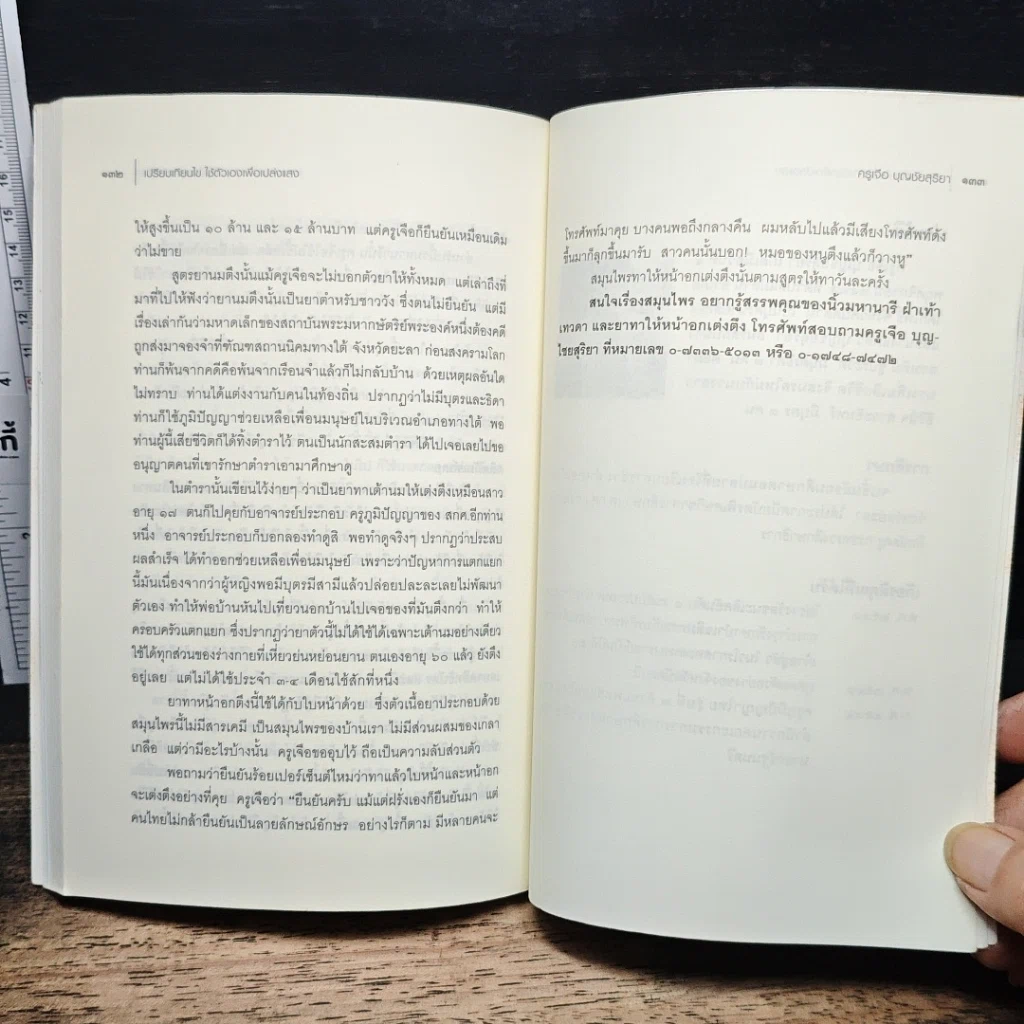 ๑๓๒ เปรียบเทียนไข ใช้ตัวเองเพื่อเปล่งแสง
ให้สูงขึ้นเป็น ๑๐ ล้าน และ ๑๕ ล้านบาท แต่ครูเจือก็ยืนยันเหมือนเดิม
ว่าไม่ขาย
สูตรยานมตึงนั้นแม้ครูเจือจะไม่บอกตัวยาให้ทั้งหมด แต่เล่าถึงที่
มาที่ไปให้ฟังว่ายานมตึงนั้นเป็นยาตำหรับชาววัง ซึ่งตนไม่ยืนยัน แต่มี
เรื่องเล่ากันว่ามหาดเล็กของสถาบันพระมหากษัตริย์พระองค์หนึ่งต้องคดี
ถูกส่งมาจองจำที่ทัณฑสถานนิคมทางใต้ จังหวัดยะลา ก่อนสงครามโลก
ท่านก็พ้นจากคดีคือพ้นจากเรือนจำแล้วก็ไม่กลับบ้าน ด้วยเหตุผลอันใด
ไม่ทราบ ท่านได้แต่งงานกับคนในท้องถิ่น ปรากฏว่าไม่มีบุตรและธิดา
ท่านก็ใช้ภูมิปัญญาช่วยเหลือเพื่อนมนุษย์ในบริเวณอำเภอทางใต้ พอ
ท่านผู้นี้เสียชีวิตก็ได้ทิ้งตำราไว้ ตนเป็นนักสะสมตำรา ได้ไปเจอเลยไปขอ
อนุญาตคนที่เขารักษาตำราเอามาศึกษาดู
ในตำรานั้นเขียนไว้ง่ายๆ ว่าเป็นยาทาเต้านมให้เต่งตึงเหมือนสาว
อายุ ๑๘ ตนก็ไปคุยกับอาจารย์ประกอบ ครูภูมิปัญญาของ สกศ.อีกท่าน
หนึ่ง อาจารย์ประกอบก็บอกลองทำดูสิ พอทำดูจริงๆ ปรากฏว่าประสบ
ผลสำเร็จ ได้ทำออกช่วยเหลือเพื่อนมนุษย์ เพราะว่าปัญหาการแตกแยก
นี้มันเนื่องจากว่าผู้หญิงพอมีบุตรมีสามีแล้วปล่อยปละละเลยไม่พัฒนา
ตัวเอง ทำให้พ่อบ้านหันไปเที่ยวนอกบ้านไปเจอของที่มันตึงกว่า ทำให้
ครอบครัวแตกแยก ซึ่งปรากฏว่ายาตัวนี้ไม่ได้ใช้ได้เฉพาะเต้านมอย่างเดียว
ใช้ได้ทุกส่วนของร่างกายที่เหี่ยวย่นหย่อนยาน ตนเองอายุ ๖๐ แล้ว ยังตึง
อยู่เลย แต่ไม่ได้ใช้ประจำ ๓-๔ เดือนใช้สักที่หนึ่ง
ยาทาหน้าอกตึงนี้ใช้ได้กับใบหน้าด้วย ซึ่งตัวเนื้อยาประกอบด้วย
สมุนไพรนี้ไม่มีสารเคมี เป็นสมุนไพรของบ้านเรา ไม่มีส่วนผสมของเกลา
เกลือ แต่ว่ามีอะไรบ้างนั้น ครูเจือขออุบไว้ ถือเป็นความลับส่วนตัว
พอถามว่ายืนยันร้อยเปอร์เซ็นต์ไหมว่าทาแล้วใบหน้าและหน้าอก
จะเต่งตึงอย่างที่คุย ครูเจือว่า “ยืนยันครับ แม้แต่ฝรั่งเองก็ยืนยันมา แต่
คนไทยไม่กล้ายืนยันเป็นลายลักษณ์อักษร อย่างไรก็ตาม มีหลายคนจะ
ครูเจือ บุญชัยสุริยา ๑๓๓
โทรศัพท์มาคุย บางคนพอถึงกลางคืน ผมหลับไปแล้วมีเสียงโทรศัพท์ดัง
ขึ้นมาก็ลุกขึ้นมารับ สาวคนนั้นบอก! หมอของหนูตึงแล้วก็วางหู”
สมุนไพรทาให้หน้าอกเต่งตึงนั้นตามสูตรให้ทาวันละครั้ง
สนใจเรื่องสมุนไพร อยากรู้สรรพคุณของนิ้วมหานารี ฝ่าเท้า
เทวดา และยาทาให้หน้าอกเต่งตึง โทรศัพท์สอบถามครูเจือ บุญ-
ไชยสุริยา ที่หมายเลข ๐-๗๓๓๖-๕๐๑๓ หรือ ๐-๑๗๔๘-๗๔๗๒